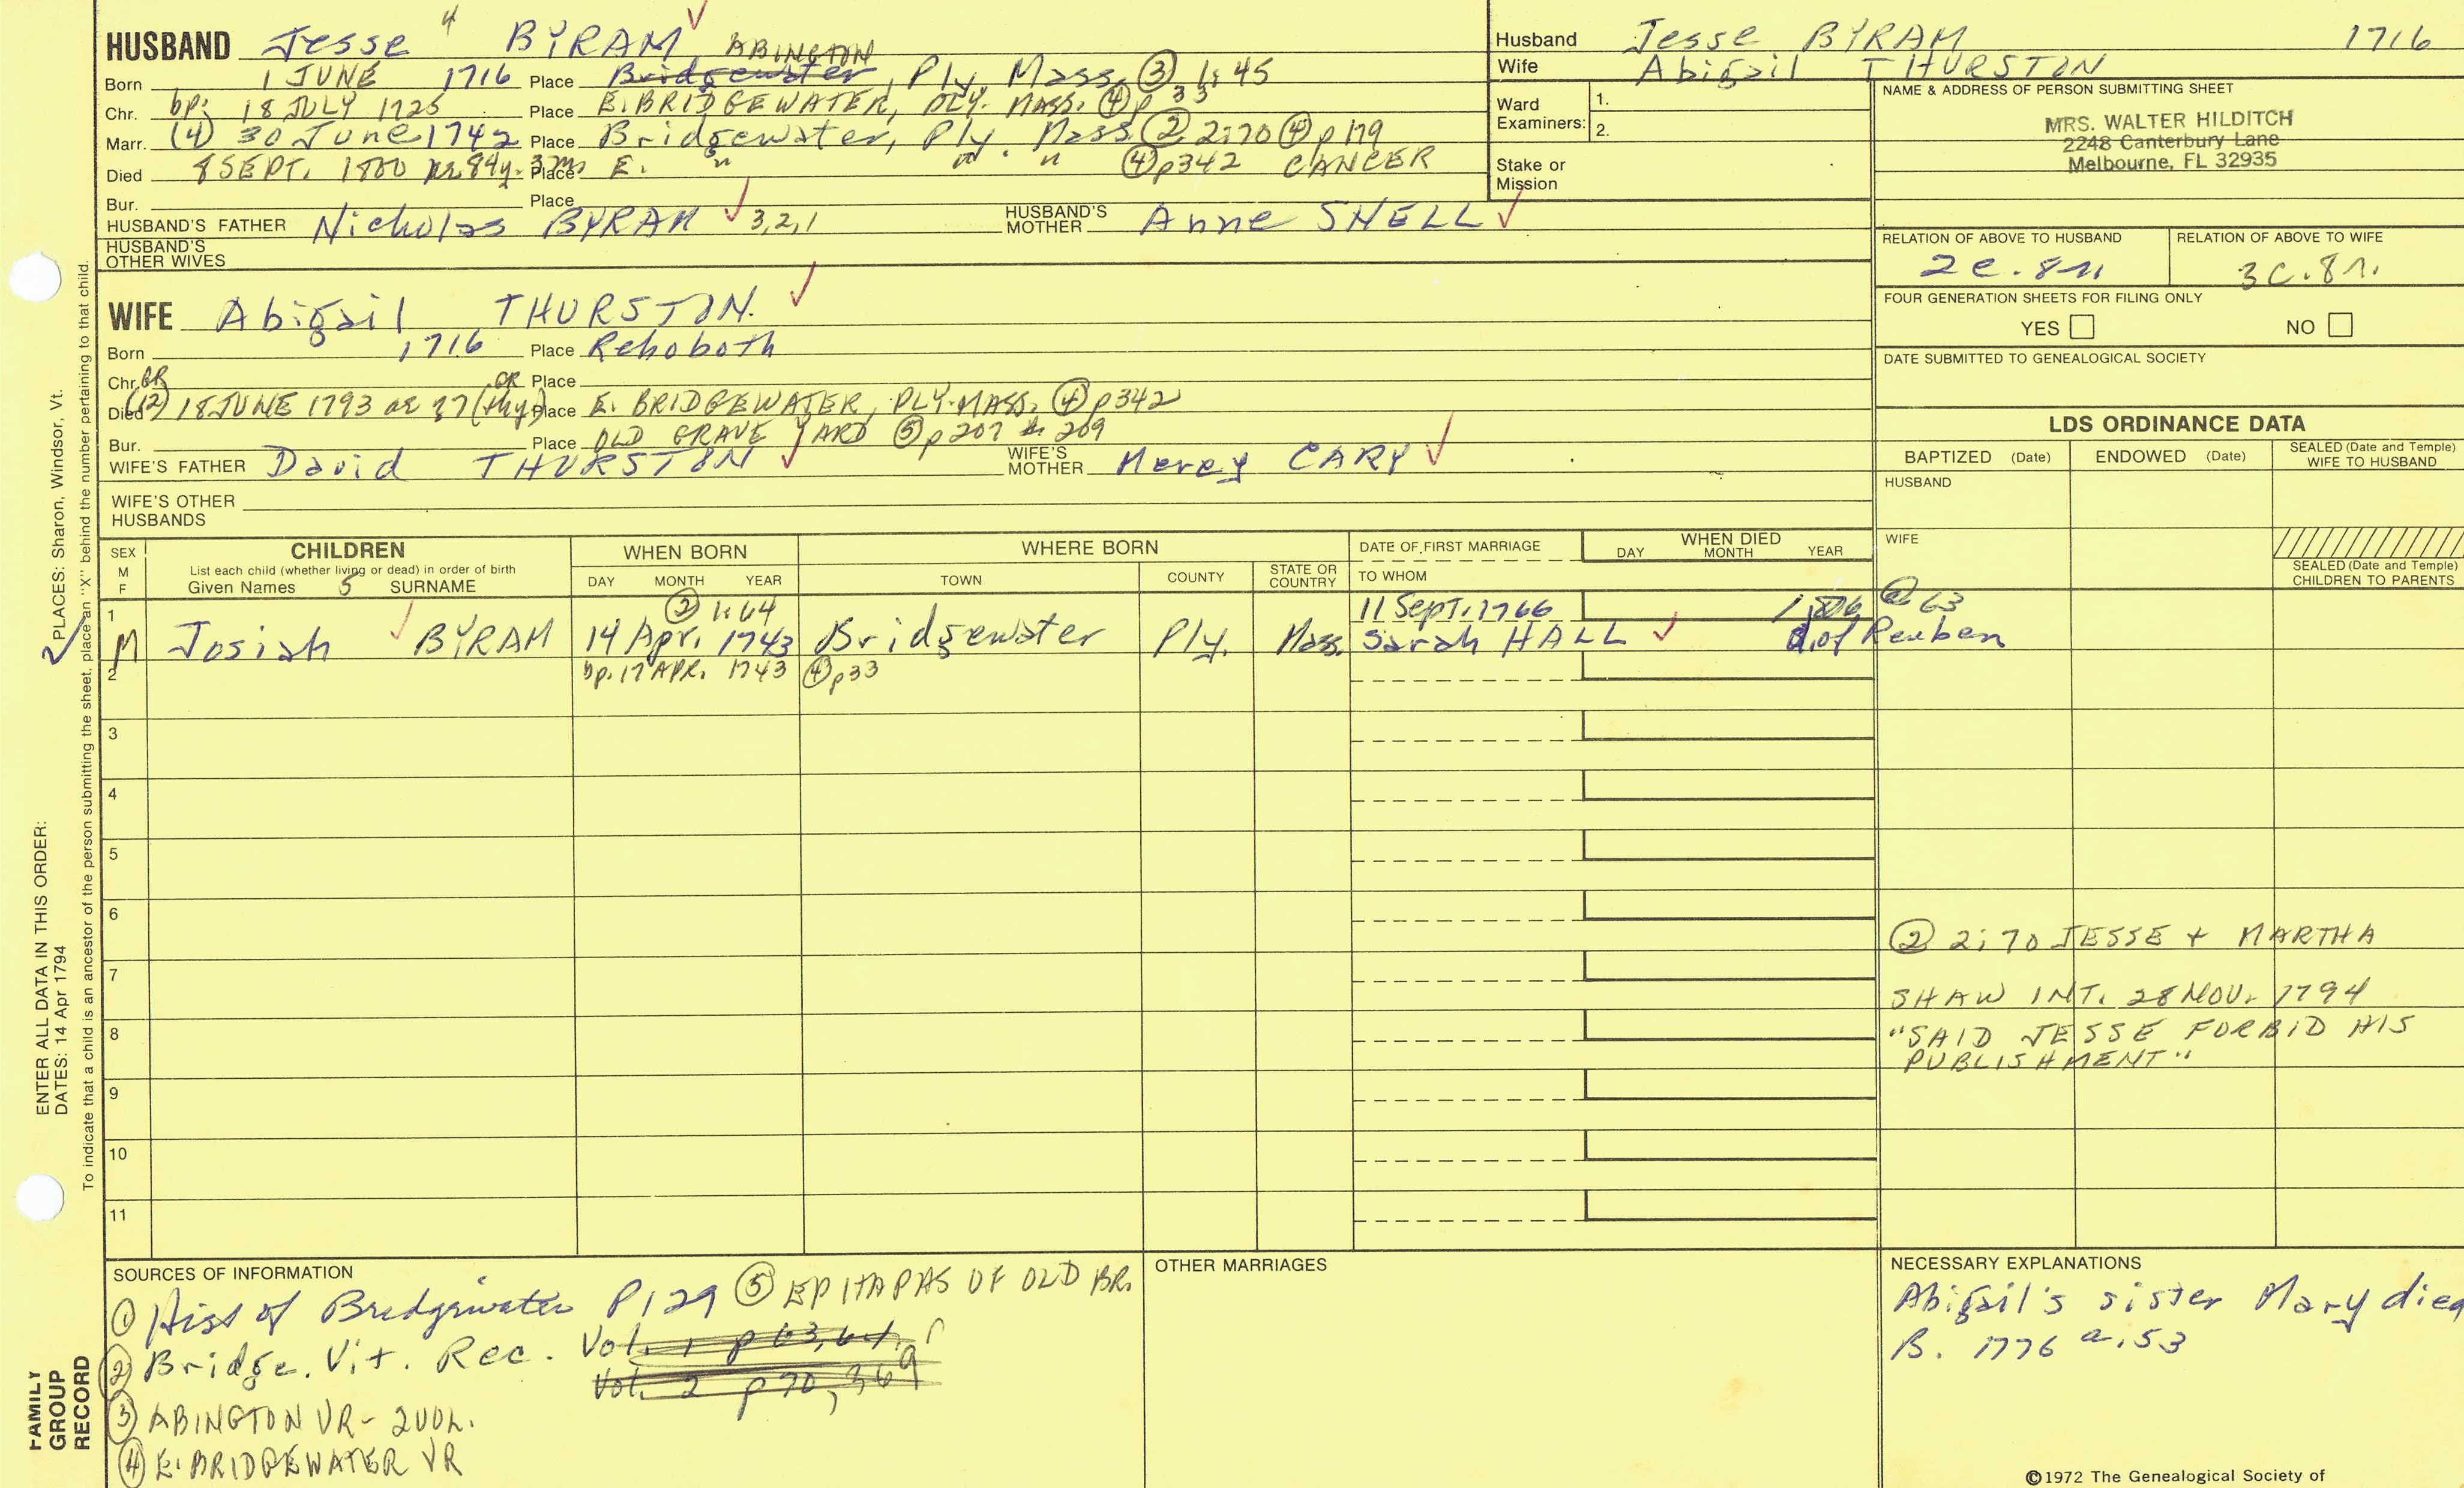 HUSBAND Jesse 4 BYRAM
ABINGTON
Born 1 JUNE 1716 Place Bridgewater, Ply. Mass. ③ 1:45
Chr. bp: 18 JULY 1725 Place E. BRIDGEWATER, PLY. MASS. ④ p 33
Marr. (4) 30 June 1742 Place Bridgewater, Ply. Mass ② 2:70 ④ p 179
Died 8 SEPT. 1800 ae 84y. 3m Place E. " " " ④ p342 CANCER
Bur. Place
HUSBAND'S FATHER Nicholas BYRAM 3,2,1 HUSBAND'S MOTHER Anne SNELL
HUSBAND'S OTHER WIVES
WIFE Abigail THURSTON
Born 1716 Place Rehoboth
Chr. GR GR Place
Died (12) 18 JUNE 1793 ae 77 Place E. BRIDGEWATER, PLY. MASS. ④ p342
Bur. Place OLD GRAVE YARD ⑤ p207 & 209
WIFE'S FATHER David THURSTON WIFE'S MOTHER Mercy CARY
WIFE'S OTHER HUSBANDS
Husband Jesse BYRAM 1716
Wife Abigail THURSTON
Ward Examiners: 1.
2.
Stake or Mission
NAME & ADDRESS OF PERSON SUBMITTING SHEET
MRS. WALTER HILDITCH
2248 Canterbury Lane
Melbourne, FL 32935
RELATION OF ABOVE TO HUSBAND RELATION OF ABOVE TO WIFE
2c.8r. 3C.8r.
FOUR GENERATION SHEETS FOR FILING ONLY
YES NO
DATE SUBMITTED TO GENEALOGICAL SOCIETY
LDS ORDINANCE DATA
BAPTIZED (Date) ENDOWED (Date) SEALED (Date and Temple) WIFE TO HUSBAND
HUSBAND
WIFE
SEALED (Date and Temple) CHILDREN TO PARENTS
SEX M F
CHILDREN
List each child (whether living or dead) in order of birth
Given Names 5 SURNAME
WHEN BORN
DAY MONTH YEAR
WHERE BORN
TOWN COUNTY STATE OR COUNTRY
DATE OF FIRST MARRIAGE
TO WHOM
WHEN DIED
DAY MONTH YEAR
② 1:64
1 11 Sept. 1766 @ 63
M Josiah BYRAM 14 Apr. 1743 Bridgewater Ply. Mass. Sarah HALL d. of Reuben
2 bp. 17 APR. 1743 ④ p33
3
4
5
6
7
8
9
10
11
② 2:70 JESSE + MARTHA
SHAW INT. 28 NOV. 1794
"SAID JESSE FORBID HIS
PUBLISHMENT"
SOURCES OF INFORMATION
① Hist of Bridgewater P129 ⑤ EPITAPHS OF OLD BR.
② Bridge. Vit. Rec. Vol. 1 p 63, 64,
Vol. 2 p 70, 369
③ ABINGTON VR - 2 VOL.
④ E. BRIDGEWATER VR
OTHER MARRIAGES
NECESSARY EXPLANATIONS
Abigail's sister Mary died
B. 1776 a. 53
©1972 The Genealogical Society of
PLACES: Sharon, Windsor, Vt.
ENTER ALL DATA IN THIS ORDER:
DATES: 14 Apr 1794
To indicate that a child is an ancestor of the person submitting the sheet, place an "X" behind the number pertaining to that child.
FAMILY GROUP RECORD